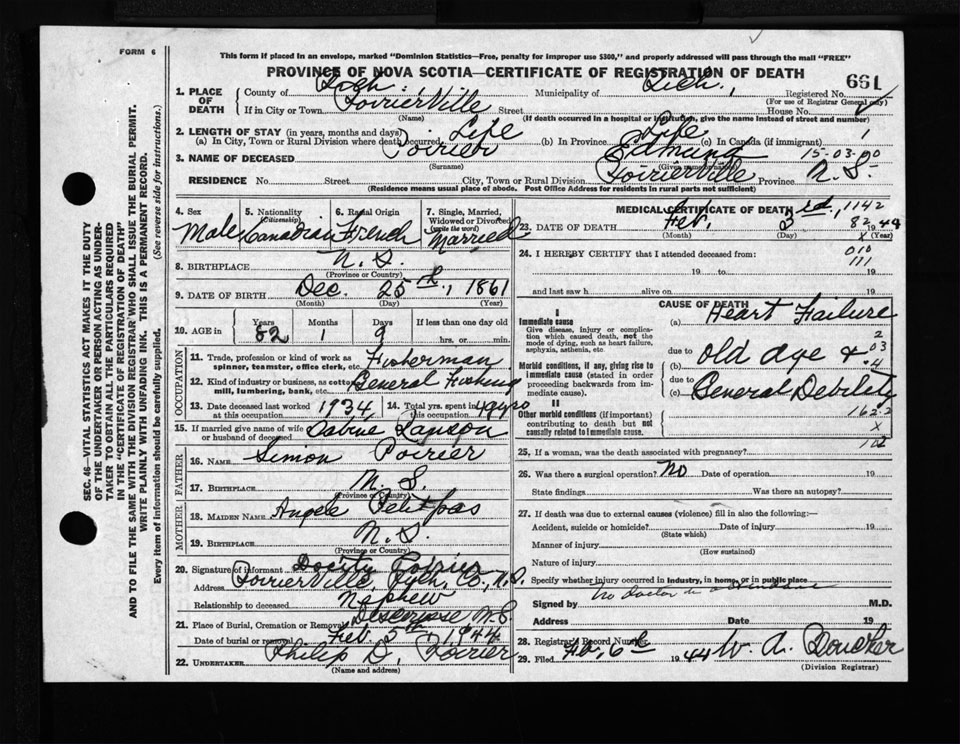 FORM 6
This form if placed in an envelope, marked "Dominion Statistics—Free, penalty for improper use $300," and properly addressed will pass through the mail "FREE"
PROVINCE OF NOVA SCOTIA—CERTIFICATE OF REGISTRATION OF DEATH
661
1. PLACE OF DEATH
County of Rich. Municipality of Rich. Registered No.
(For use of Registrar General only)
If in City or Town PoirierVille Street House No.
(Name) (If death occurred in a hospital or institution, give the name instead of street and number)
2. LENGTH OF STAY (in years, months and days)
(a) In City, Town or Rural Division where death occurred Life (b) In Province Life (c) In Canada (if immigrant) 1
3. NAME OF DECEASED Poirier Edmund 15-03-00
(Surname)
RESIDENCE No. Street City, Town or Rural Division PoirierVille Province N.S.
(Residence means usual place of abode. Post Office Address for residents in rural parts not sufficient)
4. Sex Male
5. Nationality (Citizenship) Canadian
6. Racial Origin French
7. Single, Married, Widowed or Divorced (write the word) Married
8. BIRTHPLACE N.S.
(Province or Country)
9. DATE OF BIRTH Dec. 25th, 1861
(Month) (Day) (Year)
10. AGE in Years Months Days If less than one day old
82 1 9 hrs. or min.
OCCUPATION
11. Trade, profession or kind of work as spinner, teamster, office clerk, etc. Fisherman
12. Kind of industry or business, as cotton mill, lumbering, bank, etc. General Fishing
13. Date deceased last worked at this occupation 1934
14. Total yrs. spent in this occupation
15. If married give name of wife or husband of deceased Sabine
FATHER
16. NAME Simon Poirier
17. BIRTHPLACE N.S.
(Province or Country)
MOTHER
18. MAIDEN NAME Angele Petitpas
19. BIRTHPLACE N.S.
(Province or Country)
20. Signature of informant Poirier
Address PoirierVille, Rich. Co., N.S.
Relationship to deceased Nephew
21. Place of Burial, Cremation or Removal Descousse N.S.
Date of burial or removal Feb. 5th, 1944
22. UNDERTAKER Philip D. Poirier
(Name and address)
MEDICAL CERTIFICATE OF DEATH 1142
23. DATE OF DEATH Feb. 3rd, 1944
82
(Month) (Day) (Year)
X
24. I HEREBY CERTIFY that I attended deceased from:
010
111
19 to 19
and last saw h alive on 19
CAUSE OF DEATH
I
Immediate cause
Give disease, injury or complication which caused death, not the mode of dying, such as heart failure, asphyxia, asthenia, etc.
(a) Heart Failure
2
03
.4
Morbid conditions, if any, giving rise to immediate cause (stated in order proceeding backwards from immediate cause).
due to (b) Old Age &
due to (c) General Debility
II
162-2
Other morbid conditions (if important) contributing to death but not causally related to immediate cause.
X
102
25. If a woman, was the death associated with pregnancy?
26. Was there a surgical operation? No Date of operation 19
State findings Was there an autopsy?
27. If death was due to external causes (violence) fill in also the following:—
Accident, suicide or homicide? Date of injury 19
(State which)
Manner of injury
(How sustained)
Nature of injury
Specify whether injury occurred in industry, in home, or in public place
No Doctor in attendance
Signed by M.D.
Address Date 19
28. Registrar's Record Number
29. Filed Feb. 6th 1944 W. A.
(Division Registrar)
SEC. 46—VITAL STATISTICS ACT MAKES IT THE DUTY
OF THE UNDERTAKER OR PERSON ACTING AS UNDER-
TAKER TO OBTAIN ALL THE PARTICULARS REQUIRED
IN THE "CERTIFICATE OF REGISTRATION OF DEATH"
AND TO FILE THE SAME WITH THE DIVISION REGISTRAR WHO SHALL ISSUE THE BURIAL PERMIT.
WRITE PLAINLY WITH UNFADING INK. THIS IS A PERMANENT RECORD.
Every item of information should be carefully supplied. (See reverse side for instructions.)